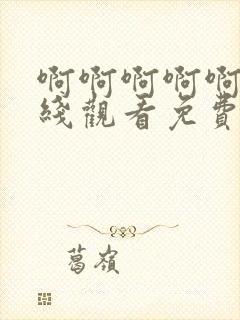 啊啊啊啊啊
綫觀看免費
葛嶺